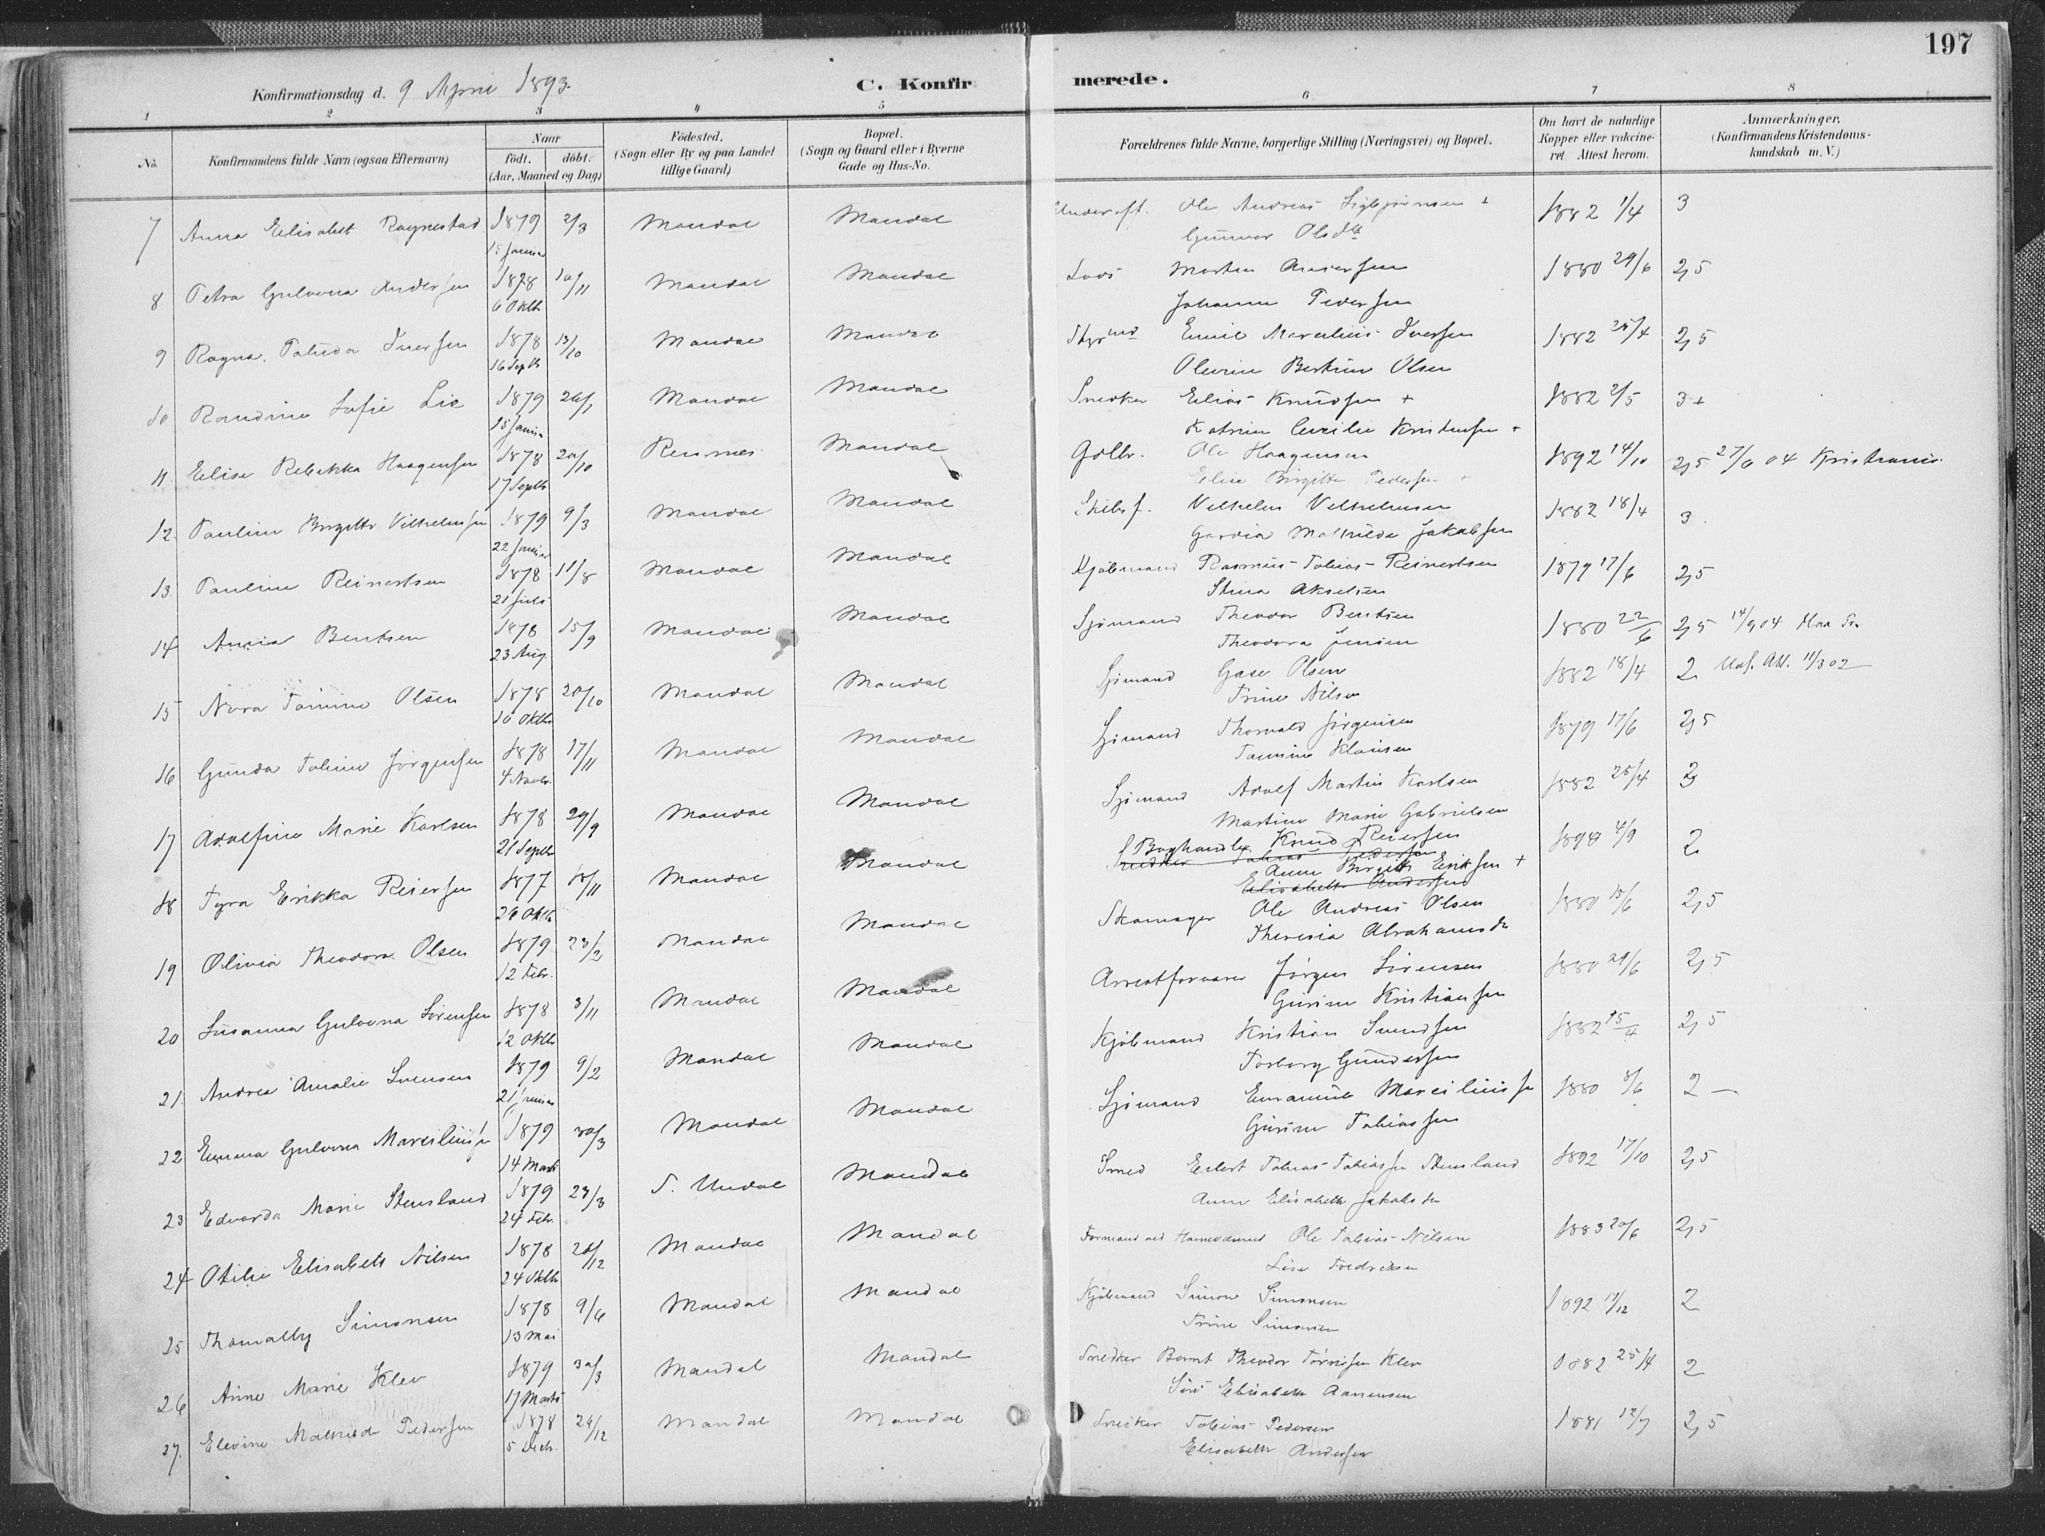 197
Konfirmationsdag d. 9 April 1893.
C. Konfirmerede.
1 2 3 4 5 6 7 8
No.
Konfirmandens fulde Navn (ogsaa Efternavn)
Naar født. døbt. (Aar, Maaned og Dag)
Fødested. (Sogn eller By og paa Landet tillige Gaard)
Bopæl. (Sogn og Gaard eller i Byerne Gade og Hus-No.
Forældrenes fulde Navne, borgerlige Stilling (Næringsvei) og Bopæl.
Om havt de naturlige Kopper eller vakcineret. Attest herom.
Anmærkninger. (Konfirmandens Kristendomskundskab m. V.)
7 Anna Elisabet Ragnestad 1879 2/3 Mandal Mandal Ole Andreas Sigbjørnsen + 1882 1/4 3
15 Januar Gunvor Olsdtt
8 Petra Gulovna Andersen 1878 10/11 Mandal Mandal Lods Martin Andersen 1880 29/6 2,5
6 Oktb Johanne Pedersen
9 Ragna Talida Iversen 1878 13/10 Mandal Mandal Styrmd Emil Marcelius Iversen 1882 25/4 2,5
16 Septb Olevine Bertine Olsen
10 Randine Sofie Lie 1879 26/1 Mandal Mandal Snedker Elias Knudsen + 1882 2/5 3+
15 Januar Katrine Cecilie Kristensen +
11 Elise Rebekka Haagensen 1878 20/10 Mandal Gdbr. Ole Haagensen 1892 14/10 2,5 27/6 04 Kristiania.
17 Septb Elise Birgitte Pedersen +
12 Pauline Birgitte Vilhelmsen 1879 9/3 Mandal Mandal Vilhelm Vilhelmsen 1882 18/4 3
22 Januar Mathilde Jakobsen
13 Pauline Reinertsen 1878 11/8 Mandal Mandal Kjøbmand Rasmus Tobias Reinertsen 1879 17/6 2,5
21 Juli Stina Akselsen
14 Anna Bentsen 1878 15/9 Mandal Mandal Sjømand Theodor Bentsen 1880 22/6 2,5 14/9 04
23 Aug Theodora Jensen
15 Nora Tomine Olsen 1878 20/10 Mandal Mandal Sjømand Olsen 1882 18/4 2 11/3 02
10 Oktb Trine Nilsen
16 Gunda Tomine Jørgensen 1878 17/11 Mandal Mandal Sjømand Thorvald Jørgensen 1879 17/6 2,5
4 Novb. Tomine Klausen
17 Adolfine Marie Karlsen 1878 29/9 Mandal Mandal Sjømand Adolf Martin Karlsen 1882 25/4 3
21 Septb Martine Marie Gabrielsen
18 Tyra Erikka Reiersen 1877 18/11 Mandal Mandal Boghandler Knud Reiersen 4/9 2
Snedker Tobias Pedersen
26 Oktb Anne Birgitte Eriksen +
Elisabeth Andersen
19 Olivia Theodora Olsen 1879 23/2 Mandal Mandal Skomager Ole Andreas Olsen 1880 15/6 2,5
12 Febr. Theresia Abrahamsdr
20 Susanna Gulovna Sørensen 1878 3/11 Mandal Mandal Arrestforvarer Jørgen Sørensen 1880 29/6 2,5
12 Oktb Gurine Kristiansen
21 Andrea Amalie Svensen 1879 9/2 Mandal Mandal Kjøbmand Kristian Svendsen 1882 15/4 2,5
21 Januar Torborg Gundersen
22 Emma Gulovna Marciliussen 1879 30/3 Mandal Mandal Sjømand Emanuel Marciliussen 1880 8/6 2 –
14 Marts Gurine Tobiassen
23 Edvarda Marie Stensland 1879 23/3 S. Undal Mandal Smed Eilert Tobias Tobiassen Stensland 1892 17/10 2,5
24 Febr. Anne Elisabeth Jakobsdr
24 Otilie Elisabeth Nilsen 1878 26/12 Mandal Mandal Formand ved Havnevæsenet Ole Tobias Nilsen 1883 20/6 2,5
24 Oktb Lise Fredriksen
25 Thomally Simonsen 1878 9/6 Mandal Mandal Kjøbmand Simon Simonsen 1892 2
13 Mai Trine Simonsen
26 Anne Marie Klev 1879 30/3 Mandal Mandal Snedker Bernt Theodor Tørrissen Klev 1882 25/4 2
17 Marts Elisabeth Aanensen
27. Elevine Mathilde Pedersen 1878 29/12 Mandal Mandal Snedker Tobias Pedersen 1881 12/7 2,5
5 Decb. Elisabeth Andersen